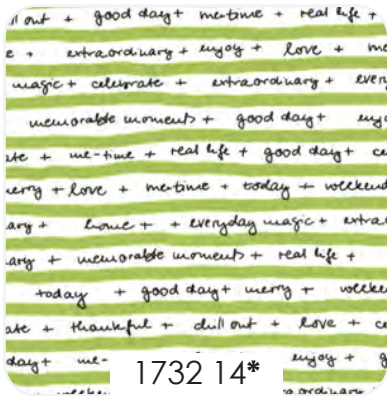 ill out + good day + me-time + real life +
e + extraordinary + enjoy + love + me
magic + celebrate + extraordinary + every
memorable moments + good day + enjo
ate + me-time + real life + good day + ce
merry + love + me-time + today + weekend
ary + home + + everyday magic + extrao
ary + memorable moments + real life +
today + good day + merry + weeke
ate + thankful + chill out + love + ce
day + me- enjoy + g
1732 14*
weeke raordinary